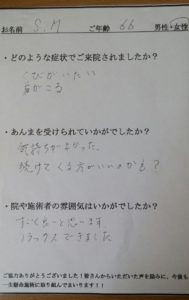 お名前 S.M ご年齢 66 男性・女性
・どのような症状でご来院されましたか？
くびがいたい
肩がこる
・あんまを受けられていかがでしたか？
気持ちがよかった、
続けてくる方がいいのかも？
・院や施術者の雰囲気はいかがでしたか？
すごく良いと思います
リラックスできました
ご協力ありがとうございました！皆さんからいただいた声を励みに、今後も
一生懸命施術に取り組んでまいります！！